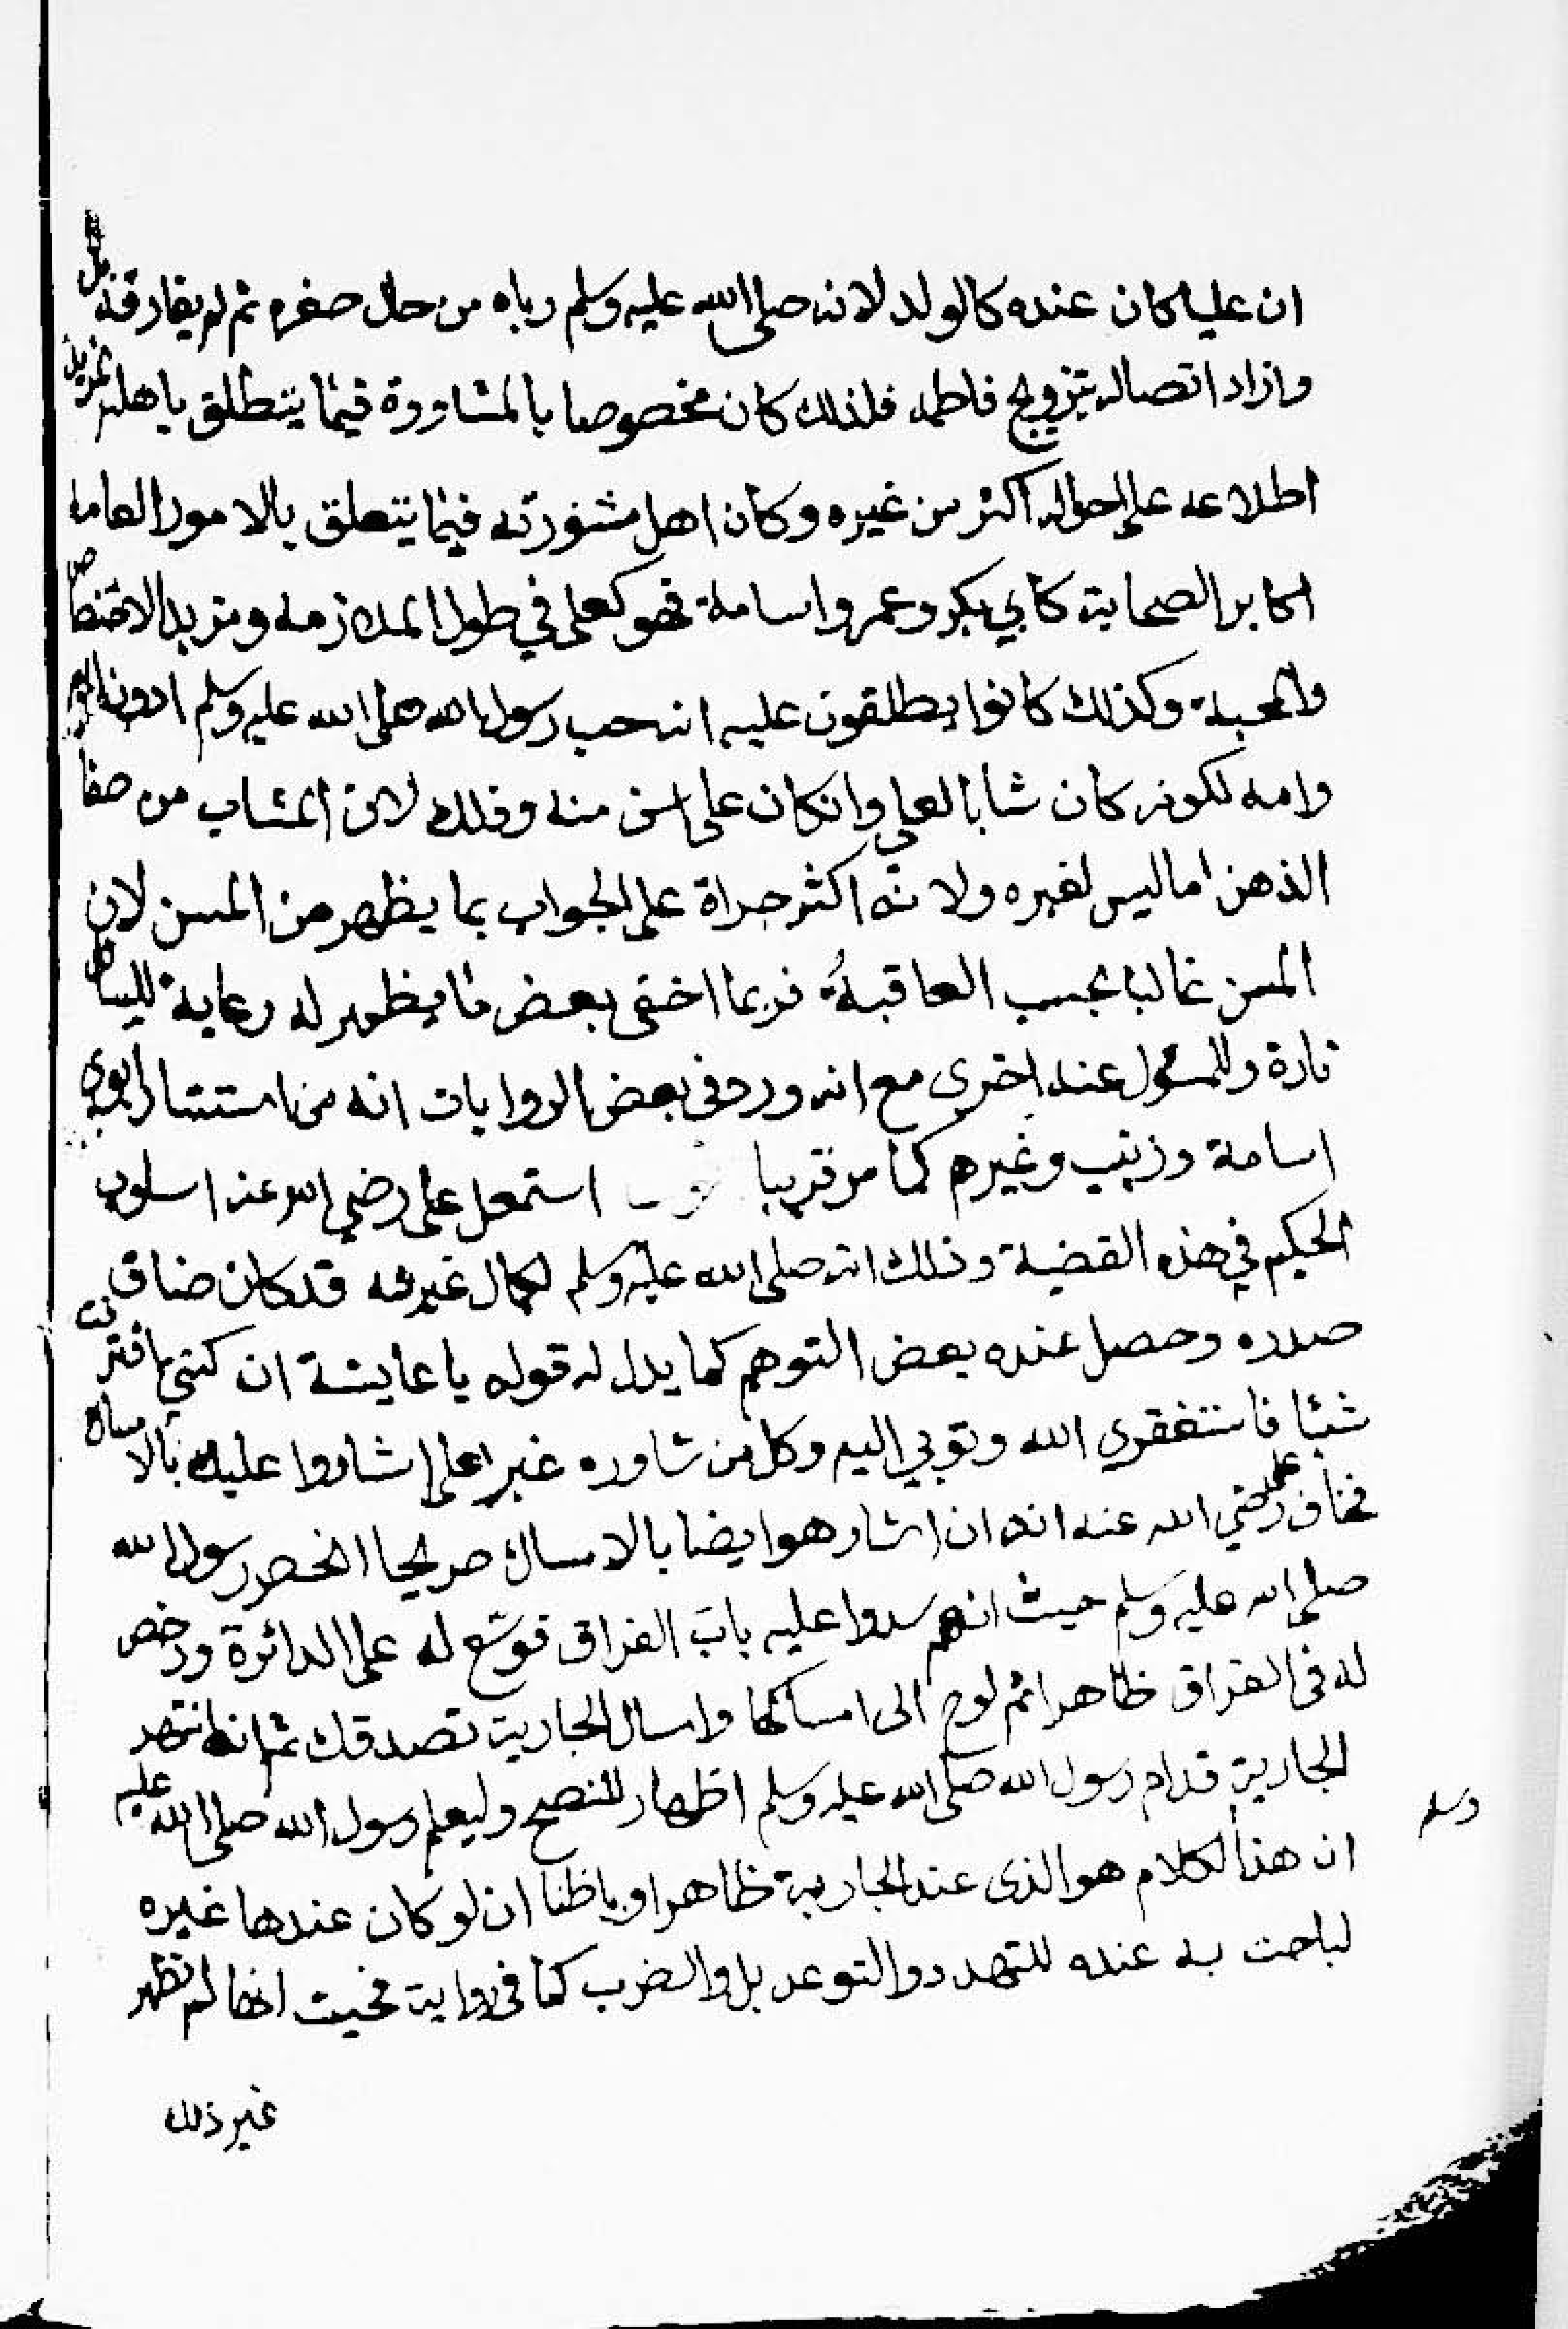 ان عليا كان عنده كالولد لانه صلى الله عليه وسلم رباه من حال صغره ثم لم يفارقه بل
وازاد اتصاله بتزويج فاطمه فلذلك كان مخصوصا بالمشاورة فيما يتطلق باهله لمزيد
اطلاعه على احواله اكثر من غيره وكان اهل مشورته فيما يتعلق بالامور العامه
اكابر الصحابة كابي بكر وعمر واسامة فهو كعلى في طول الملازمه ومزيد الاختصاص
والمحبة وكذلك كانوا يطلقون عليه انه حب رسول الله صلى الله عليه وسلم دون
وامه لكونه كان شابا لعلي وانكان على اسن منه وذلك لان الشاب من صفا
الذهن ما ليس لغيره ولانه اكثر جراة على الجواب بما يظهر من المسن لان
المسن غالبا يحسب العاقبةُ فربما اخفى بعض ما يظهر له رعاية للسائل
تارة وللمسئول عنه اخرى مع انه ورد فى بعض الروايات انه من استشار
اسامة وزينب وغيرهم كما مر قريبا استمعل على رضي الله عنه اسلوب
الحكيم في هذه القضية وذلك انه صلى الله عليه وسلم لكمال غيرته قد كان ضاق
صدره وحصل عنده بعض التوهم كما يدل له قوله يا عايشة ان كنتي اقترفت
شيئا فاستغفري الله وتوبي اليه وكل من شاوره غير على اشاروا عليه بالامساك
فخاف على رضي الله عنه انه ان اشار هو ايضا بالامساك صريحا انحصر رسول الله
صلى الله عليه وسلم حيث انهم سدوا عليه بابَ الفراق فوسّع له على الدائرة ورخص
له فى الفراق ظاهرا ثم لوح الى امساكها واسال الجارية تصدقك ثم انه انتهر
الجارية قدام رسول الله صلى الله عليه وسلم اظهار للنصح وليعلم رسول الله صلى الله عليه
وسلم
ان هذا الكلام هو الذى عند الجارية ظاهرا وباطنا ان لو كان عندها غيره
لباحت به عنده للتهدد والتوعد بل والضرب كما فى رواية فحيث انها لم تظهر
غير ذلك